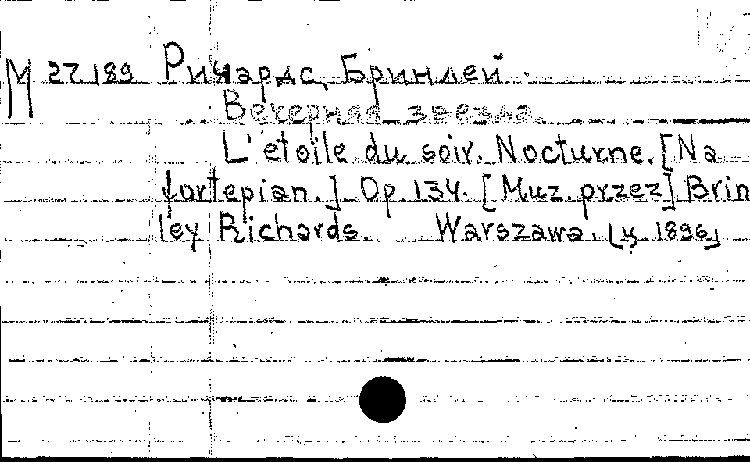 М 27189 Ричардс, Бринлей.
Вечерняя звезда.
L'etoile du soir. Nocturne. [Na
fortepian.] Op 134. [Muz. przez] Brin
ley Richards. Warszawa. [ц. 1896]